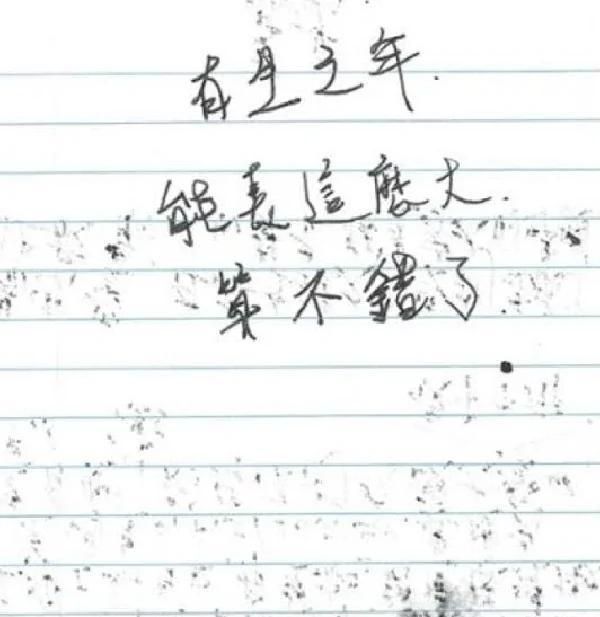 有生之年.
能長這麼大.
算不錯了